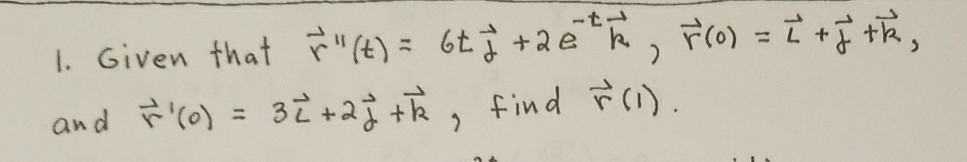 1. Given that r⃗''(t) = 6t j⃗ + 2e^{-t} k⃗, r⃗(0) = i⃗ + j⃗ + k⃗,
and r⃗'(0) = 3i⃗ + 2j⃗ + k⃗, find r⃗(1).